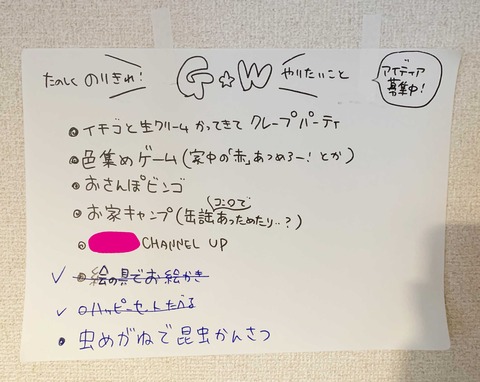 たのしく のりきれ! G☆W やりたいこと
アイディア
募集中!
・イチゴと生クリームかってきて クレープパーティ
・色集めゲーム(家中の「赤」あつめろー! とか)
・おさんぽビンゴ
・お家キャンプ(缶詰あっためたり‥?)
コンロで
・CHANNEL UP
✓・絵の具でお絵かき
✓・ハッピーセットたべる
・虫めがねで昆虫かんさつ